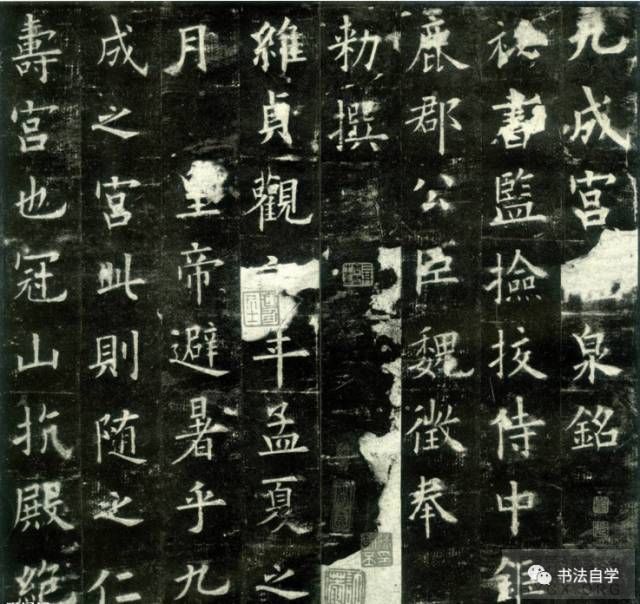 九成宮泉銘
祕書監撿挍侍中鉅
鹿郡公臣魏徵奉
勅撰
維貞觀六年孟夏之
月皇帝避暑乎九
成之宮此則随之仁
壽宮也冠山抗殿絕
书法自学